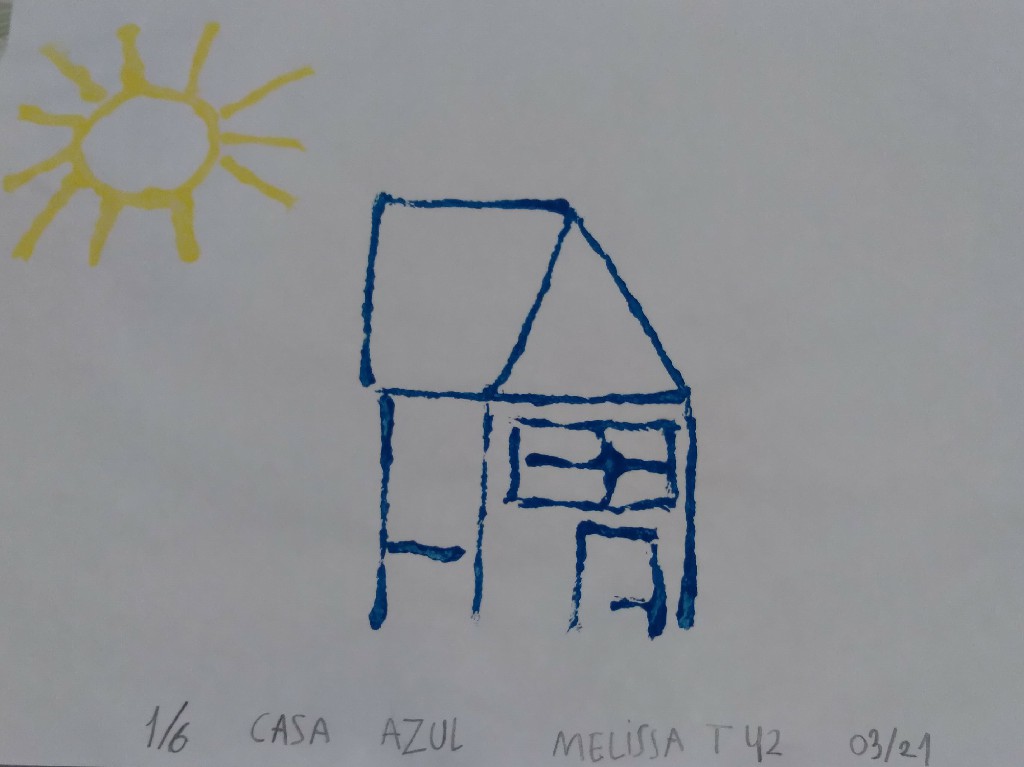 1/6 CASA AZUL MELISSA T 42 03/21